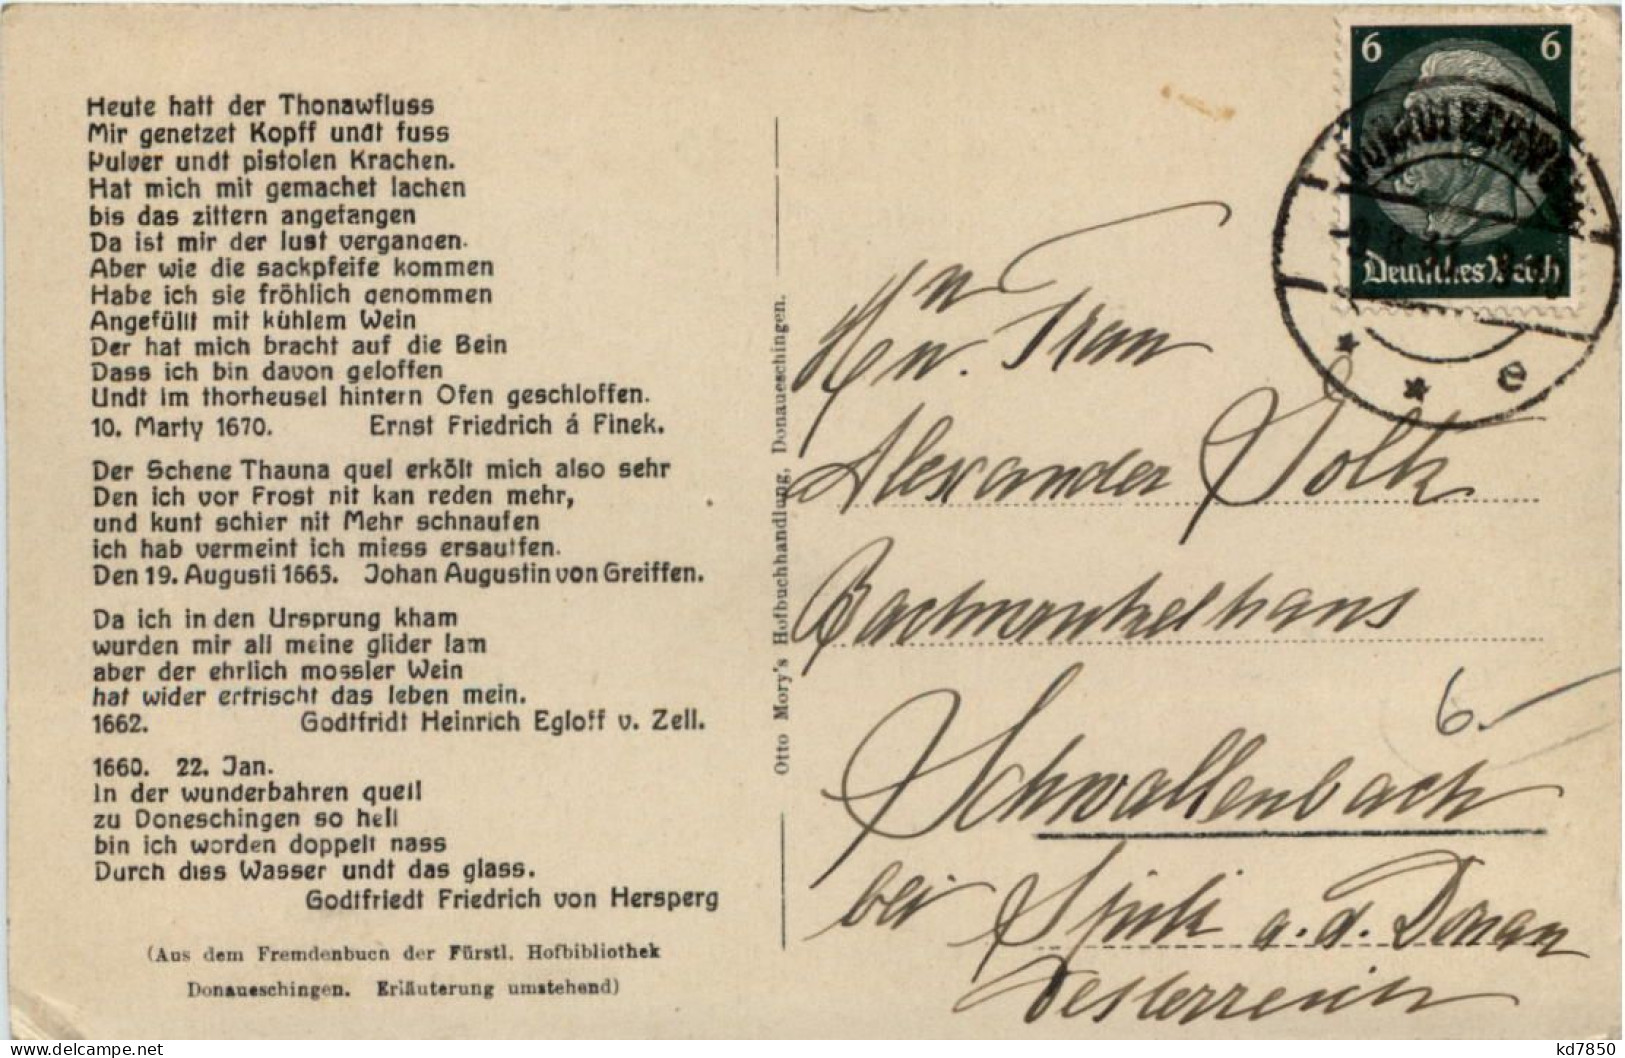 Heute hatt der Thonawfluss
Mir genetzet Kopff undt fuss
Pulver undt pistolen Krachen.
Hat mich mit gemachet lachen
bis das zittern angefangen
Da ist mir der lust vergangen.
Aber wie die sackpfeife kommen
Habe ich sie fröhlich genommen
Angefüllt mit kühlem Wein
Der hat mich bracht auf die Bein
Dass ich bin davon geloffen
Undt im thorheusel hintern Ofen geschloffen.
10. Marty 1670. Ernst Friedrich á Finek.
Der Schene Thauna quel erkölt mich also sehr
Den ich vor Frost nit kan reden mehr,
und kunt schier nit Mehr schnaufen
ich hab vermeint ich miess ersauffen.
Den 19. Augusti 1665. Johan Augustin von Greiffen.
Da ich in den Ursprung kham
wurden mir all meine glider lam
aber der ehrlich mossler Wein
hat wider erfrischt das leben mein.
1662. Godtfridt Heinrich Egloff v. Zell.
1660. 22. Jan.
In der wunderbahren quell
zu Doneschingen so hell
bin ich worden doppelt nass
Durch diss Wasser undt das glass.
Godtfriedt Friedrich von Hersperg
(Aus dem Fremdenbuch der Fürstl. Hofbibliothek
Donaueschingen. Erläuterung umstehend)
Otto Mory's Hofbuchhandlung, Donaueschingen.
6 6
Deutsches Reich
DONAUESCHINGEN
* * e
Frau
Alexander
Schwallenbach
6.
bei Spitz a. d. Donau
Oesterreich
kd7850